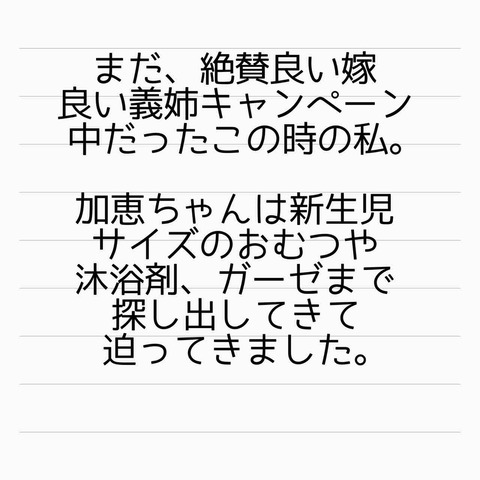 まだ、絶賛良い嫁
良い義姉キャンペーン
中だったこの時の私。
加恵ちゃんは新生児
サイズのおむつや
沐浴剤、ガーゼまで
探し出してきて
迫ってきました。